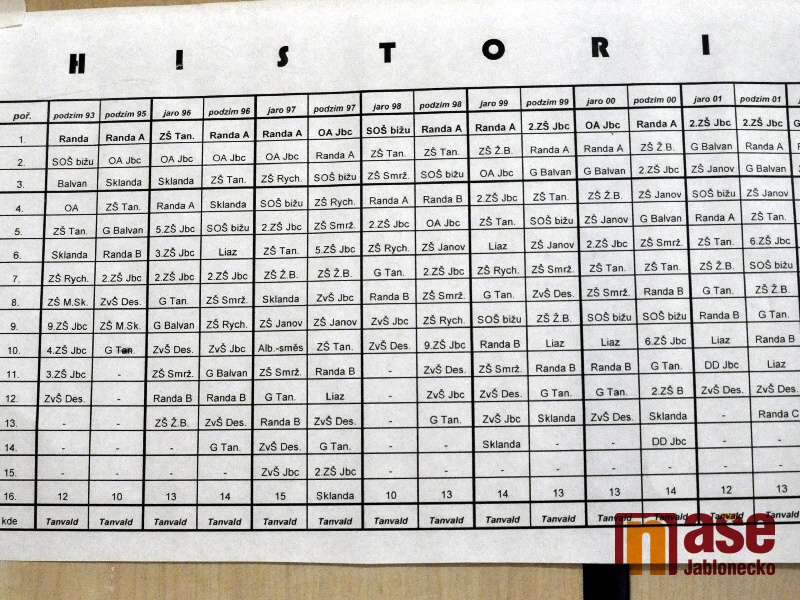 H I S T O R I
poř. podzim 93 podzim 95 jaro 96 podzim 96 jaro 97 podzim 97 jaro 98 podzim 98 jaro 99 podzim 99 jaro 00 podzim 00 jaro 01 podzim 01
1. Randa Randa A ZŠ Tan. Randa A Randa A OA Jbc SOŠ bižu Randa A Randa A 2.ZŠ Jbc OA Jbc Randa A 2.ZŠ Jbc 2.ZŠ Jbc
2. SOŠ bižu OA Jbc OA Jbc OA Jbc OA Jbc Randa A ZŠ Tan. ZŠ Tan. ZŠ Ž.B. Randa A Randa A ZŠ Ž.B. G Balvan Randa A
3. Balvan Sklanda Sklanda ZŠ Tan. ZŠ Rych. SOŠ bižu ZŠ Smrž. SOŠ bižu OA Jbc G Balvan G Balvan 2.ZŠ Jbc ZŠ Janov G Balvan
4. OA ZŠ Tan. Randa A Sklanda SOŠ bižu ZŠ Rych. Randa A Randa B 2.ZŠ Jbc ZŠ Tan. ZŠ Ž.B. ZŠ Janov SOŠ bižu ZŠ Janov
5. ZŠ Tan. G Balvan 5.ZŠ Jbc SOŠ bižu 2.ZŠ Jbc ZŠ Smrž. 2.ZŠ Jbc OA Jbc ZŠ Tan. SOŠ bižu ZŠ Janov G Balvan Randa A ZŠ Tan.
6. Sklanda Randa B 3.ZŠ Jbc Liaz ZŠ Tan. 5.ZŠ Jbc ZŠ Rych. ZŠ Janov Liaz ZŠ Janov 2.ZŠ Jbc ZŠ Smrž. ZŠ Tan. 6.ZŠ Jbc
7. ZŠ Rych. 2.ZŠ Jbc 2.ZŠ Jbc 2.ZŠ Jbc ZŠ Ž.B. ZŠ Ž.B. G Tan. 2.ZŠ Jbc ZŠ Rych. ZŠ Smrž. ZŠ Tan. ZŠ Tan. ZŠ Ž.B. SOŠ bižu
8. ZŠ M.Sk. ZvŠ Des. G Tan. ZŠ Smrž. Sklanda ZvŠ Jbc Randa B ZŠ Smrž. G Tan. ZvŠ Des. ZŠ Smrž. Randa B G Tan. ZŠ Ž.B.
9. 9.ZŠ Jbc ZŠ M.Sk. G Balvan ZŠ Rych. ZŠ Janov ZŠ Janov ZvŠ Jbc ZŠ Rych. SOŠ bižu ZŠ Ž.B. SOŠ bižu SOŠ bižu Randa B G Tan.
10. 4.ZŠ Jbc G Tan. ZvŠ Des. ZvŠ Jbc Alb.-směs ZŠ Tan. ZvŠ Des. 9.ZŠ Jbc Randa B Liaz Liaz 6.ZŠ Jbc Liaz Randa B
11. 3.ZŠ Jbc - ZŠ Smrž. G Balvan ZŠ Smrž. Randa B - ZvŠ Des. ZŠ Smrž. Randa B Randa B G Tan. DD Jbc Liaz
12. ZvŠ Des. - Randa B Randa B G Tan. Liaz - ZvŠ Jbc ZvŠ Des. G Tan. G Tan. 2.ZŠ B ZvŠ Des. ZvŠ Des.
13. - - ZŠ Ž.B. ZvŠ Des. Randa B ZvŠ Des. - G Tan. ZvŠ Jbc Sklanda ZvŠ Des. Sklanda - Randa C
14. - - - G Tan. ZvŠ Des. G Tan. - - Sklanda - - DD Jbc - -
15. - - - - ZvŠ Jbc 2.ZŠ Jbc - - - - - - - -
16. 12 10 13 14 15 Sklanda 10 13 14 13 13 14 12 13
kde Tanvald Tanvald Tanvald Tanvald Tanvald Tanvald Tanvald Tanvald Tanvald Tanvald Tanvald Tanvald Tanvald Tanvald
naše
Jablonecko